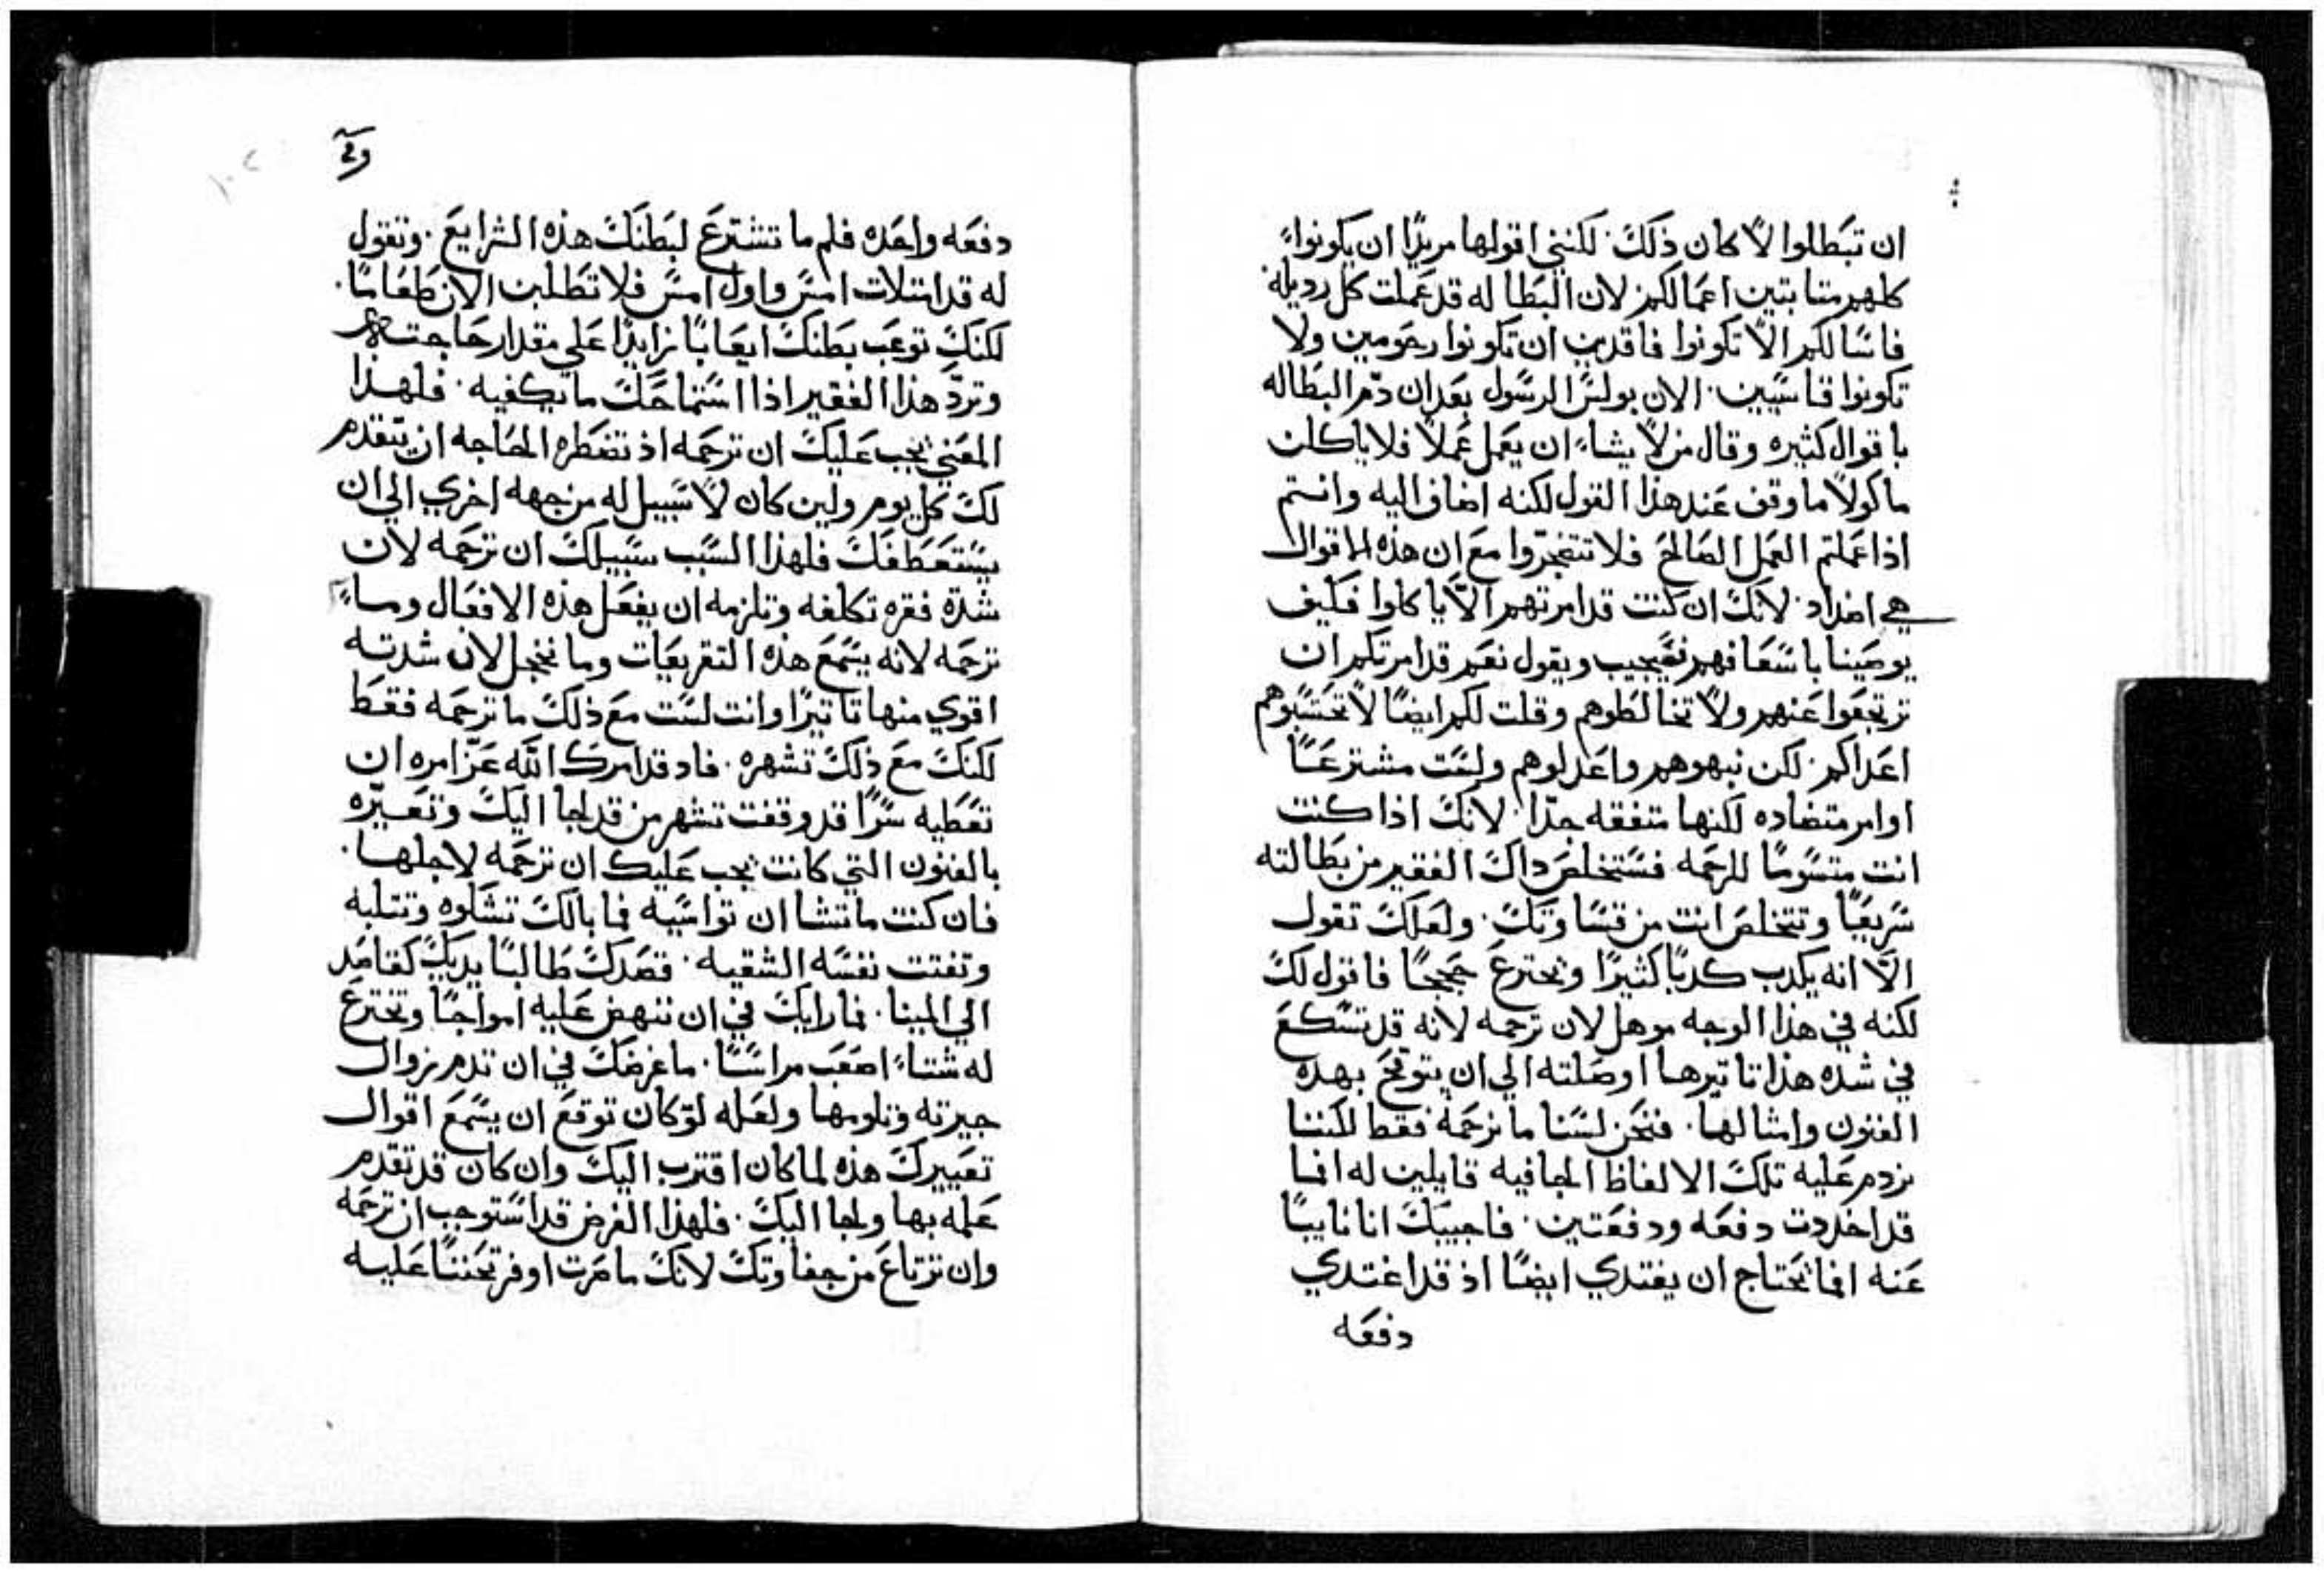 ان تبطلوا لا كان ذلك. لكنني اقولها مريدًا ان يكونوا
كلهم متابتين اعمالكم لان البطاله قد عملت كل رديله.
فاسالكم الا تكونوا فاقدين ان تكونوا رحومين ولا
تكونوا قاسيين. الان بولس الرسول بعد ان دم البطاله
باقوال كثيره وقال من لا يشاء ان يعمل عملًا فلا ياكلن
ماكولًا ما وقف عند هذا القول لكنه اضاف اليه وانتم
اذا عملتم العمل الصالح فلا تتضجروا مع ان هذه الاقوال
هي اضداد. لانك ان كنت قد امرتهم الا ياكلوا فكيف
يوصينا باسعافهم فيجيب ويقول نعم قد امرتكم ان
ترتجعوا عنهم ولا تخالطوهم وقلت لكم ايضًا لا تحتسبوهم
اعداكم. لكن نبهوهم واعدلوهم ولست مشترعًا
اوامر متضاده لكنها متفقه جدًا. لانك اذا كنت
انت متسومًا للرحمه فستخلص داك الفقير من بطالته
سريعًا وتتخلص انت من قساوتك. ولعلك تقول
الا انه يكدب كدبًا كثيرًا ويخترع حججًا فاقول لك
لكنه في هذا الوجه موهل لان ترحمه لانه قد تسكع
في شده هذا تاتيرها اوصلته الي ان يتوقح بهده
الفنون وامثالها. فنحن لسنا ما نرحمه فقط لكننا
نردم عليه تلك الالفاظ الجافيه قايلين له افما
قد اخدت دفعه ودفعتين. فاجيبك انا نايبًا
عنه افما تحتاج ان يغتدي ايضًا اذ قد اغتدي
دفعه
دفعه واحده فلم ما تشترع لبطنك هذه الشرايع. وتقول
له قد امتلات امس واول امس فلا تطلبن الان طعامًا.
لكنك توعب بطنك ايعابًا زايدًا علي مقدار حاجته
وتردّ هذا الفقير اذا استماحك ما يكفيه. فلهذا
المعني يجب عليك ان ترحمه اذ تضطره الحاجه ان يتقدم
لك كل يوم ولين كان لا سبيل له من جهه اخري الي ان
يستعطفك فلهذا السبب سبيلك ان ترحمه لان
شدة فقره تكلفه وتلزمه ان يفعل هذه الافعال وما
ترحمه لانه يسمع هذه التقريعات وما يخجل لان شدته
اقوي منها تاتيرًا وانت لست مع ذلك ما ترحمه فقط
لكنك مع ذلك تشهره. فاد قد امرك الله عز امره ان
تعطيه سرًا قد وقفت تشهر من قد لجا اليك وتعيّره
بالفنون التي كانت يجب عليك ان ترحمه لاجلها.
فان كنت ما تشا ان تواسيه فما بالك تشكوه وتتلبه
وتفتت نفسه الشقيه. قصدك طالبًا يديك كقاصد
الي المينا. فما رايك في ان تنهض عليه امواجًا وتخترع
له شتاء اصعب مراسًا. ما غرضك في ان تدم زوال
جيرته وتلومها ولعله لو كان توقع ان يسمع اقوال
تعييرك هذه لما كان اقترب اليك وان كان قد تقدم
علمه بها ولجا اليك. فلهذا الغرض قد استوجب ان ترحمه
وان ترتاع من جفاوتك لانك ما صرت اوفر تحننًا عليه